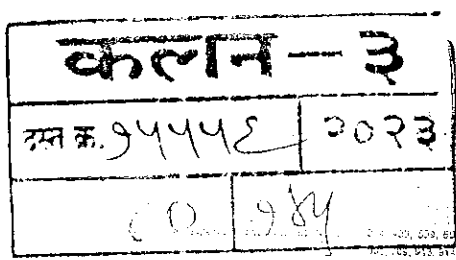 कलन - ३
दस्त क्र. १५५५६ २०२३
८० १४५